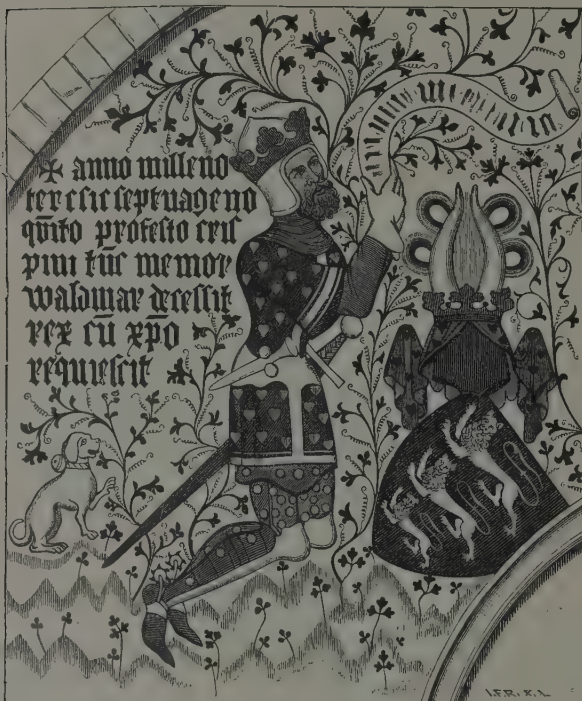 ✠ anno milleno
ter c sic septuageno
qūito profesto cris
pini tūc memor
waldmar decessit
rex cū xp̄o
requiescit
I.F.R. X. L